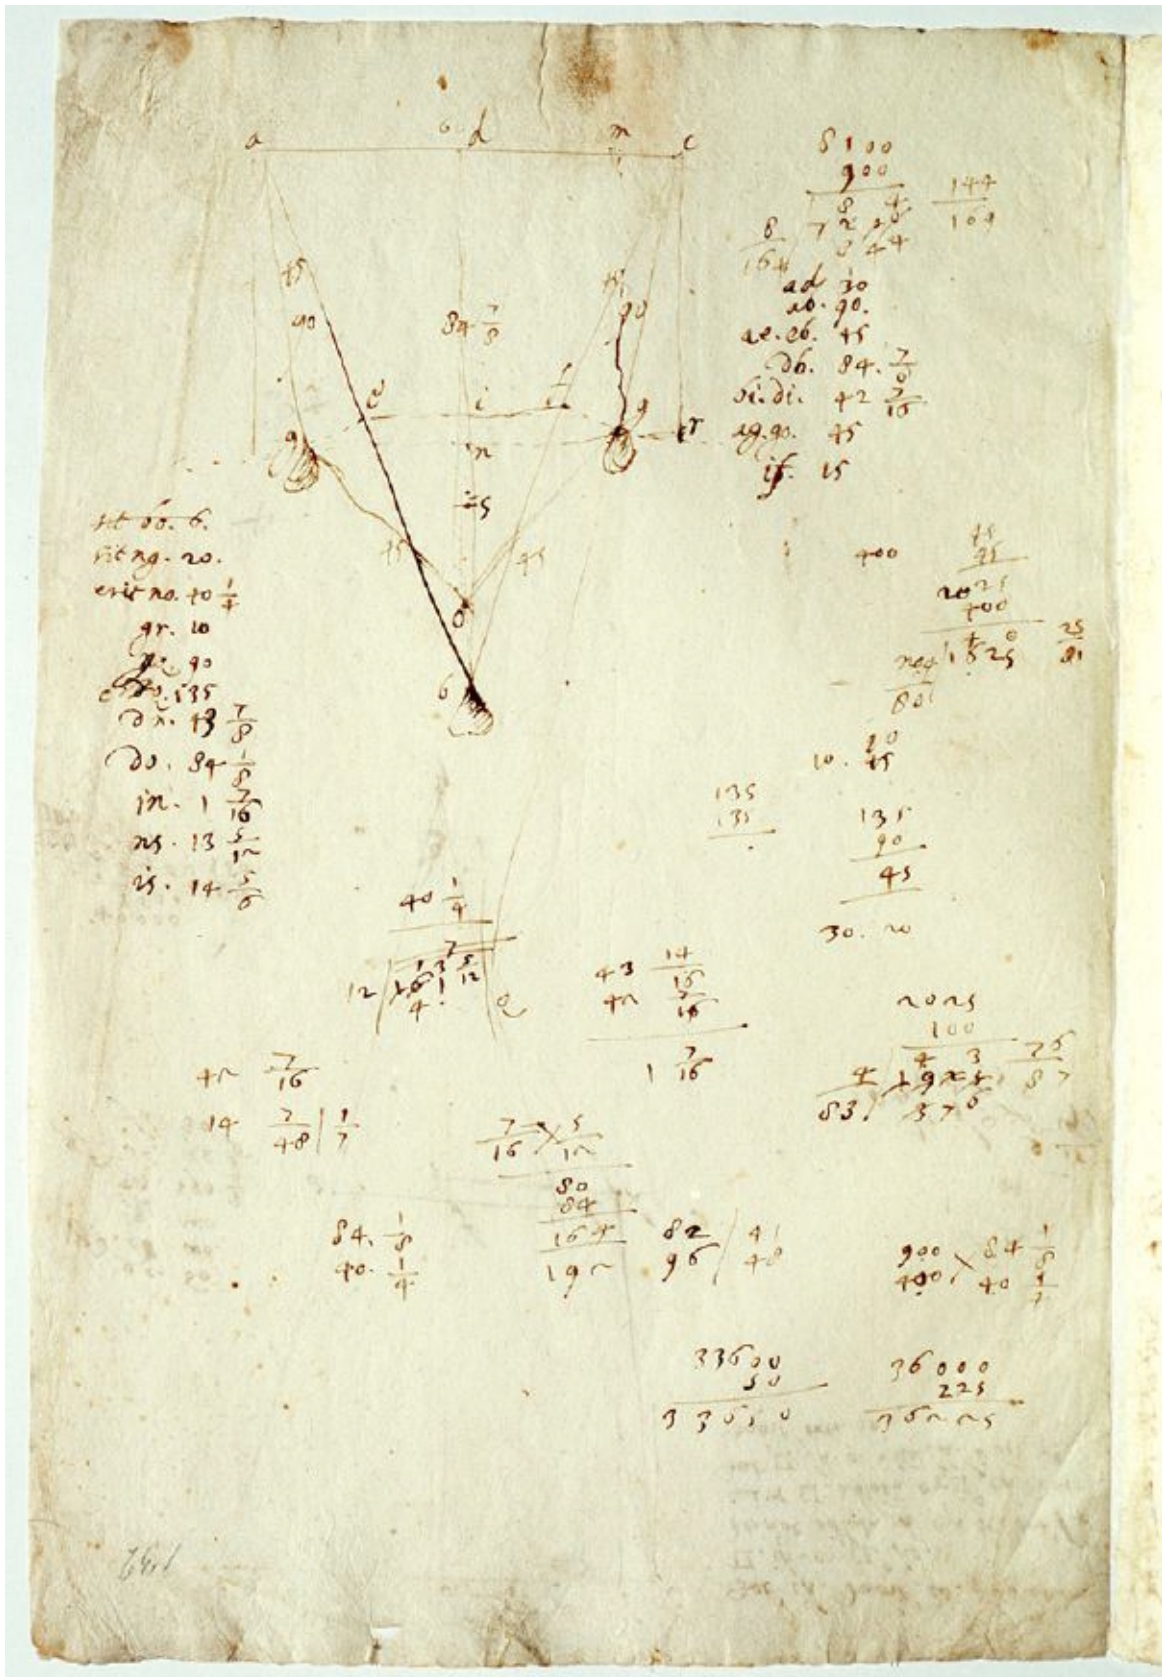 a d m c
45
90
84 7/8
45
90
e i f
g n g r
s
45 45
o
b
8100
900
144
169
8
164
ad 30
ab. 90.
ae. eb. 45
db. 84. 7/8
bi. di. 42 7/16
ag. go. 45
if. 15
sit bo. 6.
sit ng. 20.
erit no. 40 1/4
gr. 10
90
135
dn. 43 7/8
do. 84 1/8
in. 1 7/16
ns. 13 5/12
is. 14 5/6
400
45
45
2025
400
1625
80
25
81
10. 45
135
135
135
90
45
30. 20
40 1/4
12
13 5/12
161
4
43 14/16
42 7/16
1 7/16
2025
100
4
83
1925
376
76
87
42 7/16
14 7/48 | 1/7
7/16 5/12
80
84
164
192
84. 1/8
40. 1/4
82
96
41
48
900 84 1/8
400 40 1/4
33600
50
33650
36000
225
36225